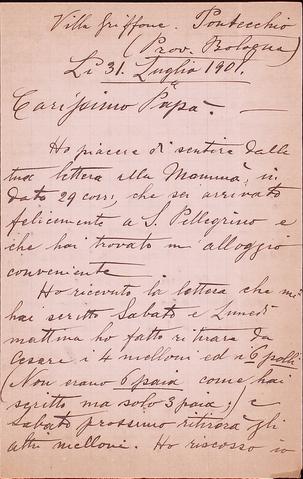 Villa Griffone. Pontecchio
(Prov. Bologna)
Li 31. Luglio 1901.
Carissimo Papà. —
Ho piacere di sentire dalla
tua lettera alla Mammà, in
dato 29 corr; che sei arrivato
felicemente a S. Pellegrino e
che hai trovato un alloggio
conveniente
Ho ricevuto la lettera che mi
hai scritto Sabato e Lunedì
mattina ho fatto ritirare da
Cesare i 4 melloni ed i 6 polli
(Non erano 6 paia come hai
scritto ma solo 3 paia;) e
Sabato prossimo ritirerà gli
altri melloni. Ho riscosso io